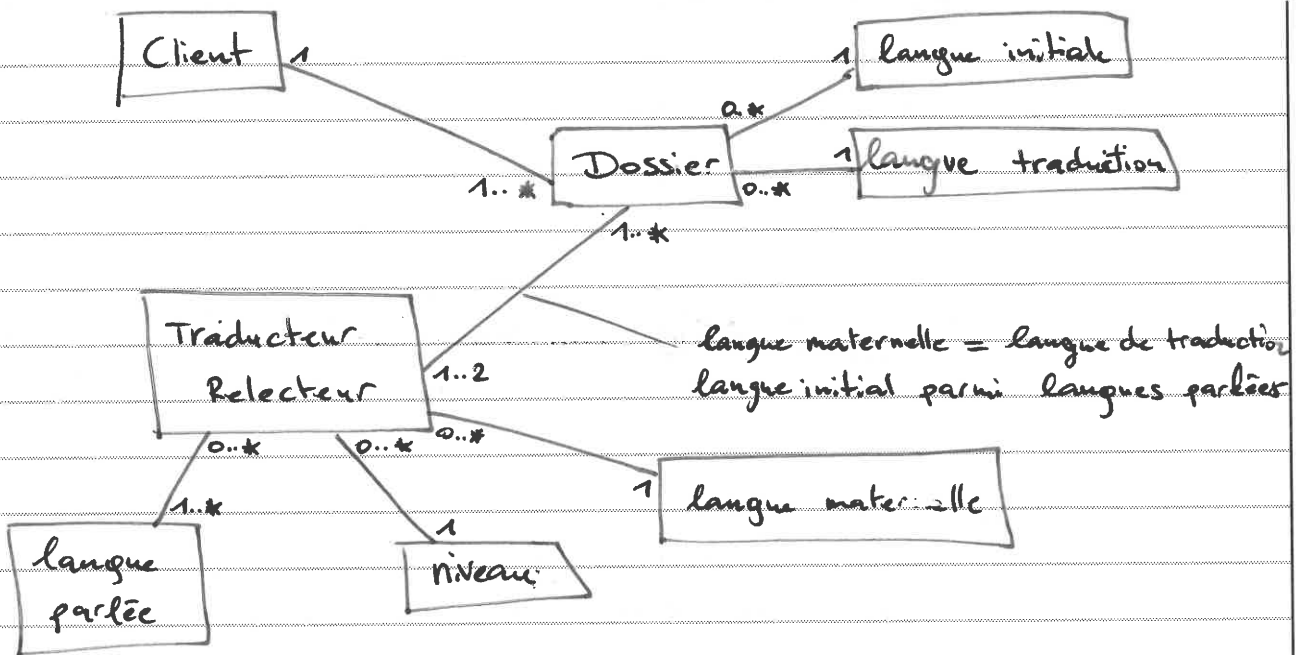 Client
1
1
langue initiale
0..*
Dossier
1
langue traduction
1..*
0..*
1..*
Traducteur
Relecteur
1..2
langue maternelle = langue de traduction
langue initial parmi langues parlées
0..*
0..*
0..*
1..*
1
1
langue
parlée
niveau
langue maternelle